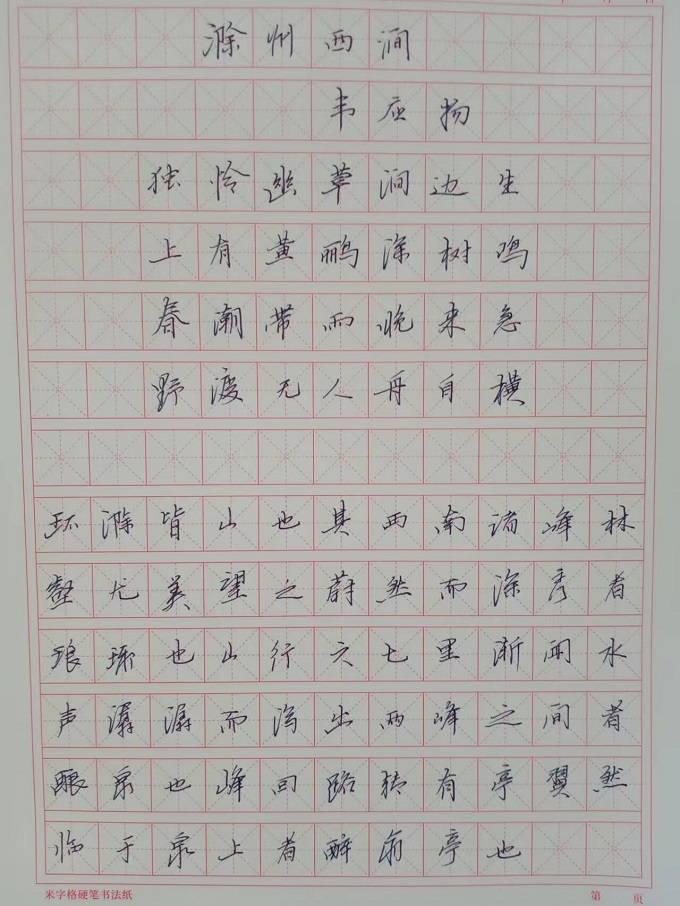 滁州西涧
韦应物
独怜幽草涧边生
上有黄鹂深树鸣
春潮带雨晚来急
野渡无人舟自横
环滁皆山也其西南诸峰林
壑尤美望之蔚然而深秀者
琅琊也山行六七里渐闻水
声潺潺而泻出两峰之间者
酿泉也峰回路转有亭翼然
临于泉上者醉翁亭也
米字格硬笔书法纸 第 页